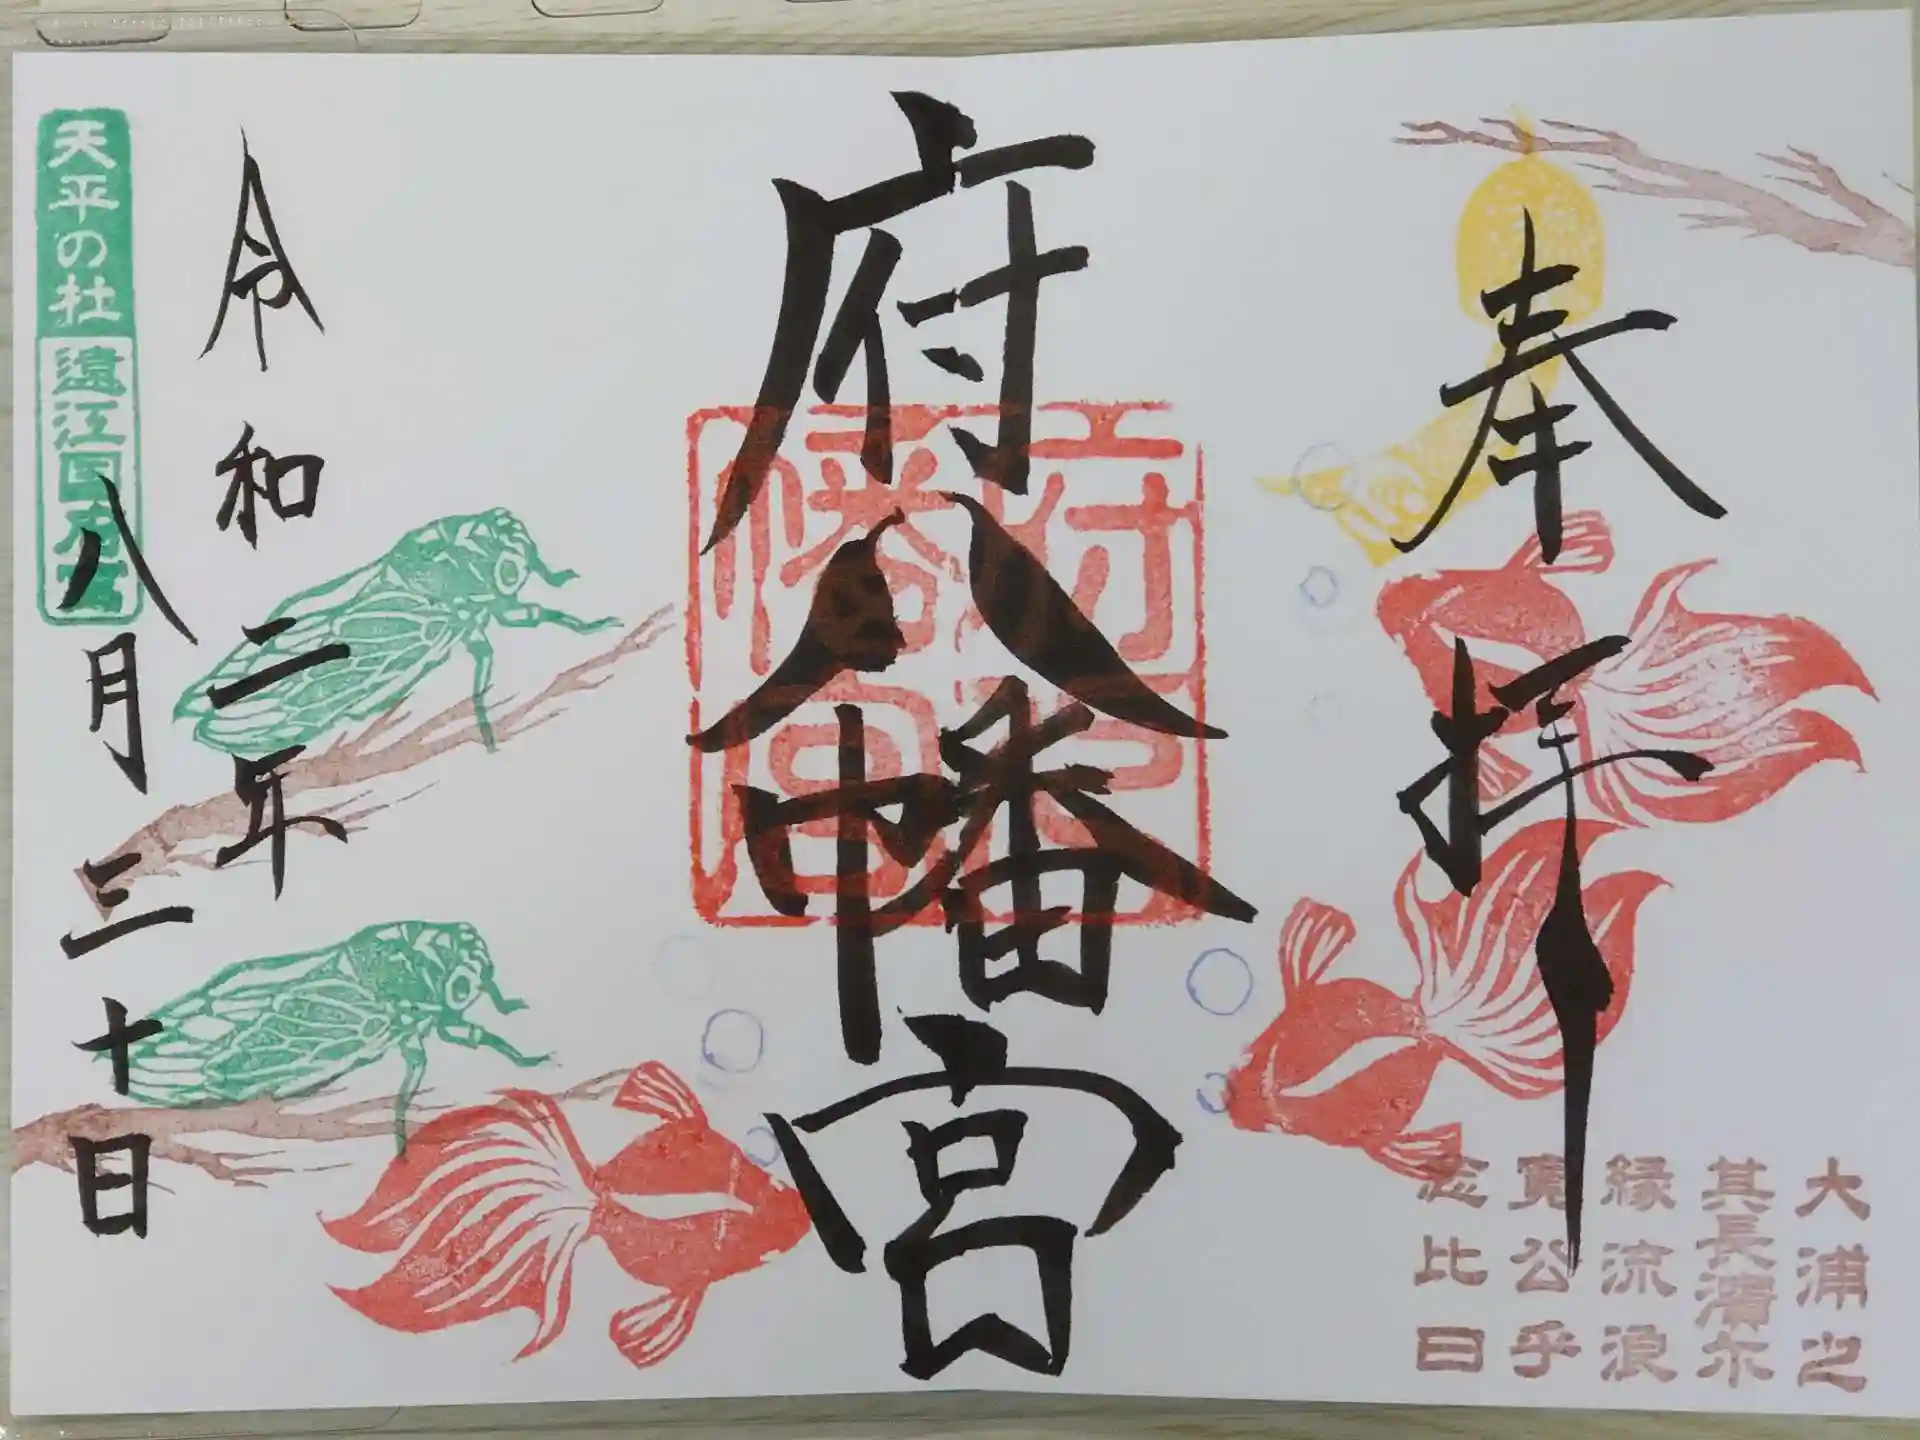 奉拝
大浦之
其長濱尓
縁流浪
寛公乎
念比日
府八幡宮
府八幡宮
令和二年
八月三十日
天平の杜
遠江国府宮